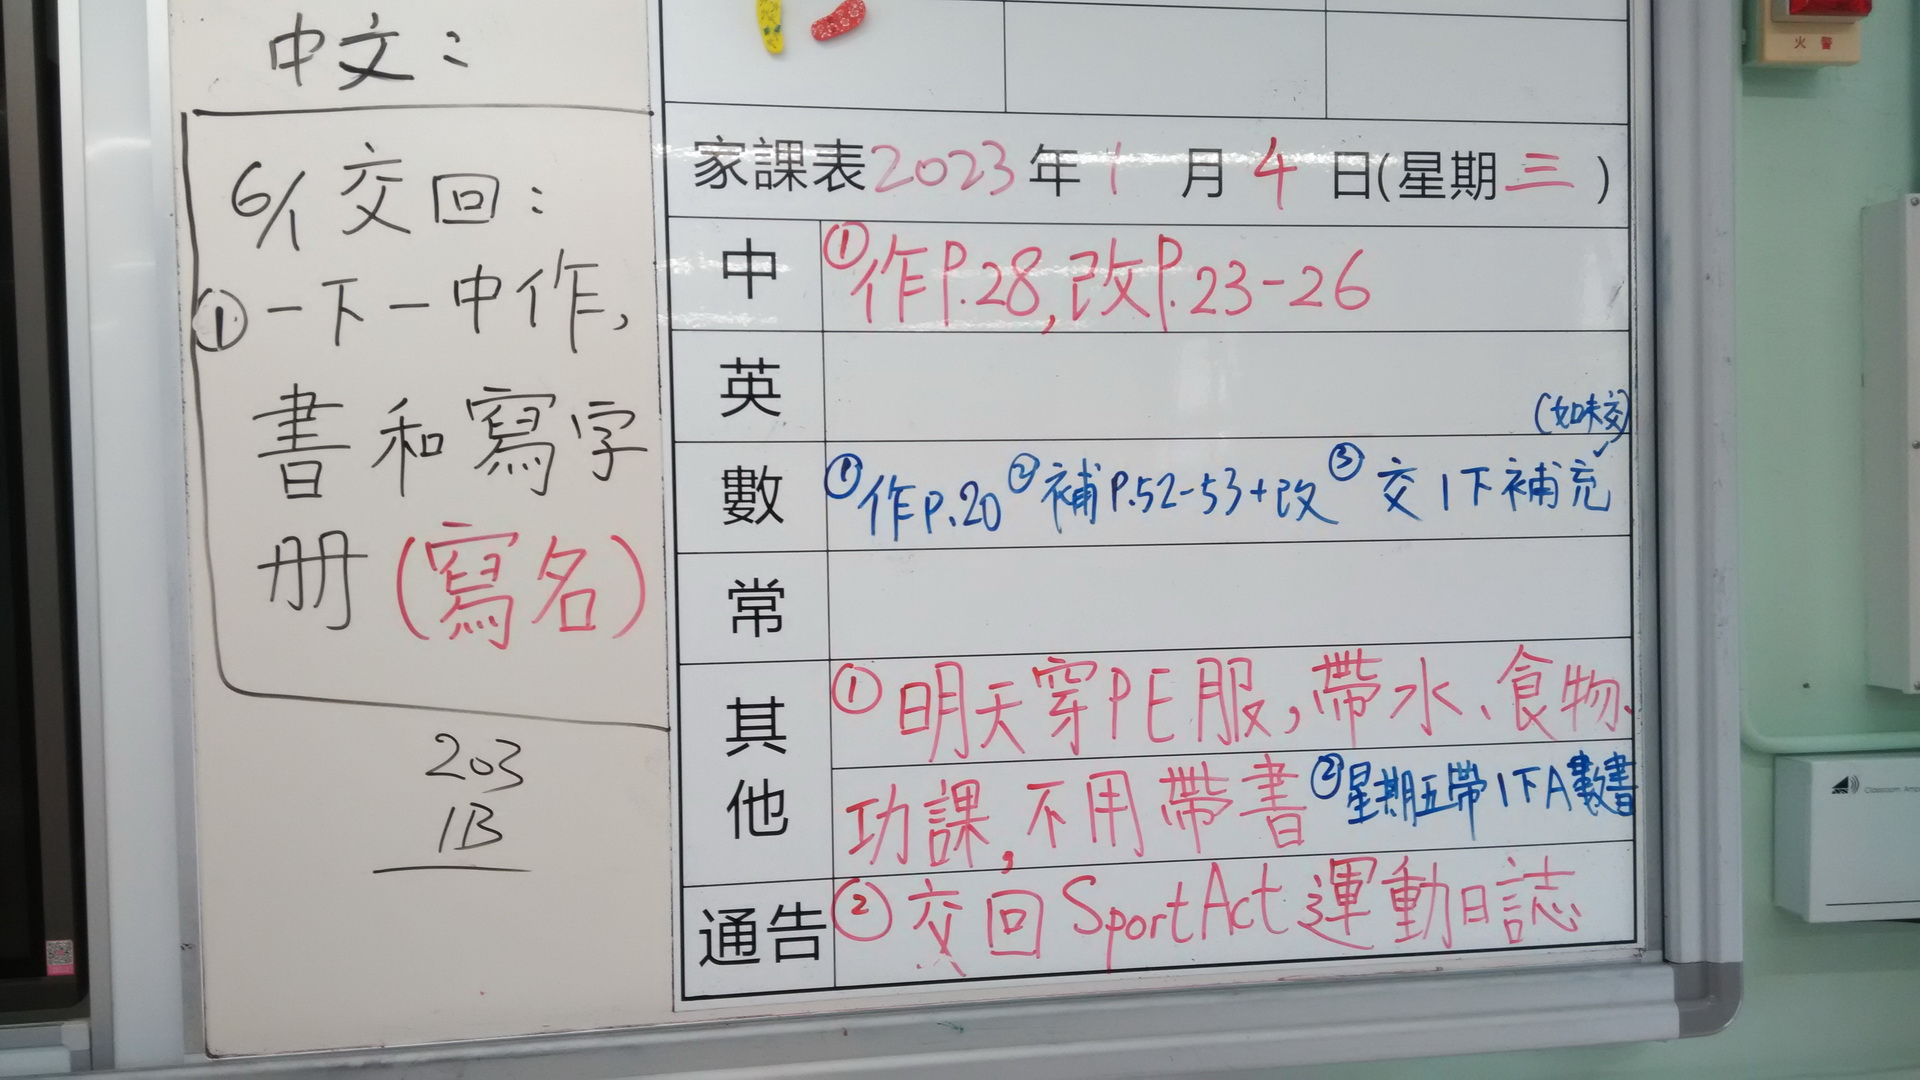 中文：
6/1 交回：
①一下一中作，
書和寫字
册(寫名)
203
1B
家課表2023年1月4日(星期三)
中 ①作P.28,改P.23-26
英
(如未交)
數 ①作P.20 ②補P.52-53+改 ③交1下補充
常
其他 ①明天穿PE服，帶水、食物、
功課，不用帶書 ②星期五帶1下A數書
通告 ②交回SportAct運動日誌
火警